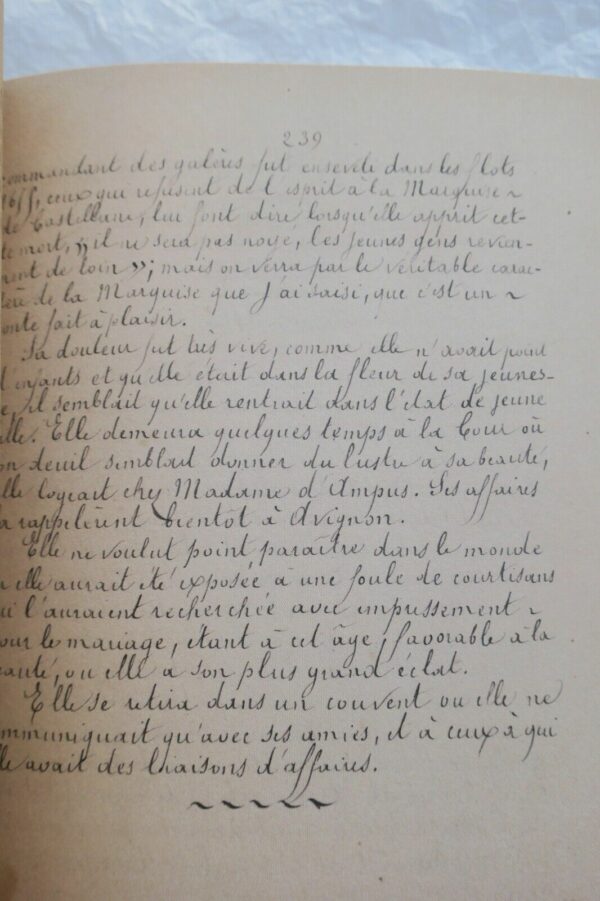 239
ommandant des galères fut enseveli dans les flots
ceux qui refusent de l'esprit à la Marquise ~
de Castellane, lui font dire lorsqu'elle apprit cet-
te mort, « il ne sera pas noyé, les jeunes gens revien-
nent de loin »; mais on verra par le véritable carac-
tère de la Marquise que j'ai saisi, que c'est un ~
onte fait à plaisir.
Sa douleur fut très vive, comme elle n'avait point
d'enfants et qu'elle était dans la fleur de sa jeunes-
e, il semblait qu'elle rentrait dans l'état de jeune
lle. Elle demeura quelques temps à la Cour où
on deuil semblait donner du lustre à sa beauté,
lle logeait chez Madame d'Ampus. Ses affaires
a rappelèrent bientôt à Avignon.
Elle ne voulut point paraître dans le monde
elle aurait été exposée à une foule de courtisans
ui l'auraient recherchée avec impressement ~
our le mariage, étant à cet âge, favorable à la
eauté, ou elle a son plus grand éclat.
Elle se retira dans un couvent ou elle ne
mmuniquait qu'avec ses amies, et à ceux à qui
le avait des liaisons d'affaires.